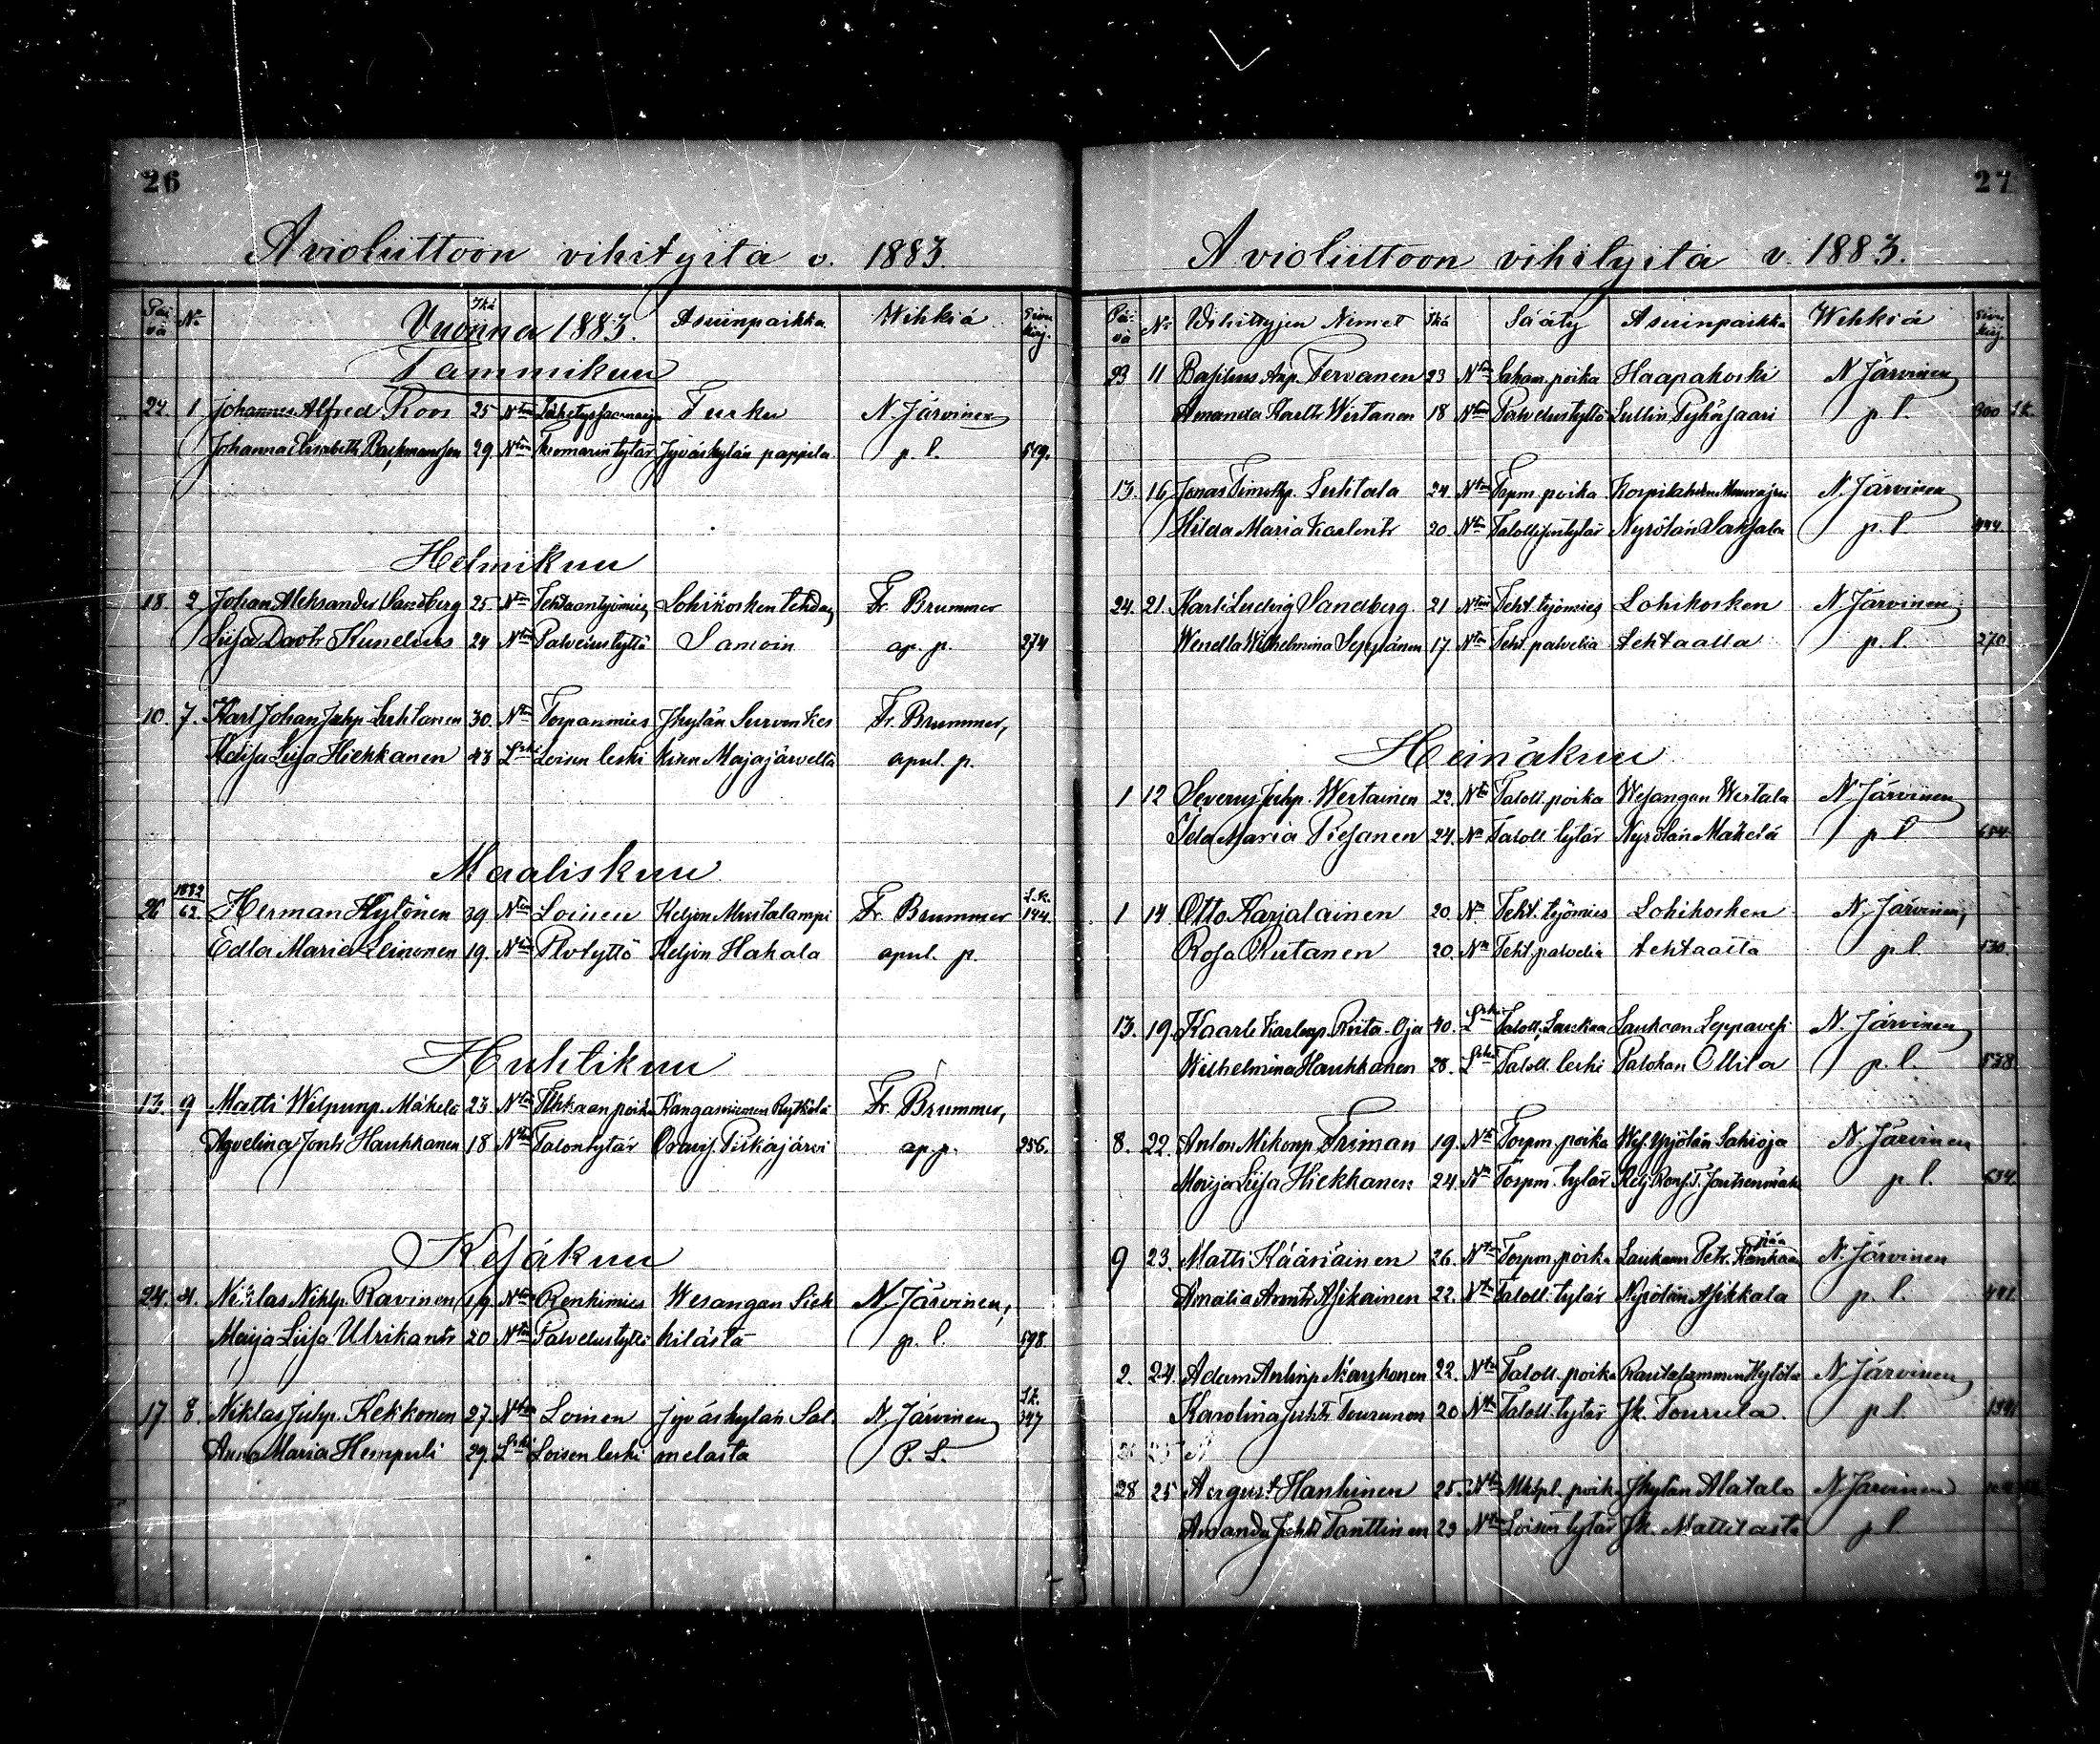 26
Avioliittoon vihityitä v. 1883.
Päivä No Vuonna 1883. Ikä Asuinpaikka Wihkiä Sivu kirj.
Tammikuu
24. 1 Johannes Alfred Roos 25 Ntön Turku N. Järvinen
Johanna Elisabeth 29. Ntön tytär Jyväskylän pappila p. l. 519.
Helmikuu
18. 2 Johan Aleksander Sandberg 25 Ntön Tehtaantyömies Lohikosken tehdas Fr. Brummer
Liisa Davtr Kunelius 24 Ntön Palvelustyttö Samoin ap. p. 274
10. 7. Karl Johan Juhp. Luhtanen 30. Ntön Torpanmies Jkylän Fr. Brummer,
Maija Liisa Hiekkanen 43 Leski Loisen leski Majajärveltä apul. p.
Maaliskuu
26 1882/62. Herman Hytönen 39 Ntön Loinen Keljon Mustalampi Fr. Brummer S.K. 144.
Edla Maria Leinonen 19. Ntön Plvtyttö Keljon Hakala apul. p.
Huhtikuu
13. 9 Matti Wilpunp. Mäkelä 23 Ntön poika Kangasniemen Fr. Brummer,
Jontr Hauhkanen 18 Ntön Talontytär Pitkäjärvi ap. p. 256.
Kesäkuu
24. Niklas Niklp. Ravinen 19. Ntön Renkimies Wesangan Sieh N. Järvinen,
Maija Liisa Ulrikantr 20 Ntön Palvelustyttö kilästä p. l. 598
17 8 Niklas Juhp. Kekkonen 27 Ntön Loinen Jyväskylän Sal- N. Järvinen S.k. 347
Anna Maria Hemperli 29. Leski Loisen leski melasta P. L.
27
Avioliittoon vihityitä v. 1883.
Päivä No Wihittyjen Nimet Ikä Sääty Asuinpaikka Wihkiä Sivu kirj.
23 11 Tervanen 23 Ntön poika Haapakoski N. Järvinen
Amanda Karltr Wirtanen 18 Ntön Palvelustyttö Pyhäsaari p. l. 300 S.k.
13. 16 Jonas Timothp. Luhtala 24. Ntön Torpm. poika N. Järvinen
Hilda Maria Karlentr 20. Ntön Talollisentytär Nyrölän Saksala p. l. 444.
24. 21. Karl Ludvig Sandberg 21 Ntön Teht. työmies Lohikosken N. Järvinen
Wendla Wilhelmina Seppänen 17. Ntön Teht. palvelia tehtaalta p. l. 270.
Heinäkuu
1 12 Severus Juhp. Wertainen 22. Ntön Taloll. poika Wesangan Wertala N. Järvinen
Ida Maria Piesanen 24. Nn Taloll. tytär Nyrölän Mäkelä p. l. 654.
1 14. Otto Karjalainen 20. Nn Teht. työmies Lohikosken N. Järvinen,
Rosa Rutanen 20. Nn Teht. palvelia tehtaalta p. l. 130.
13. 19. Kaarle Karlinp. Riita-Oja 40. Leski Taloll. Laukaa Laukaan Leppävesi N. Järvinen
Wilhelmina Hauhkanen 28. Leski Taloll. leski Palokan Ollila p. l. 538
8. 22. Anton Mikonp. Friman 19. Ntön Torpm. poika Sahioja N. Järvinen
Maija Liisa Hiekkanen 24. Nn Torpm. tytär p. l. 634
9 23. Matti Kääriäinen 26. Ntön Torpm. poika Laukaan Petr. Kankaanpää N. Järvinen
Amalia Arontr Asikainen 22. Ntön Taloll. tytär Nyrölän Asikkala p. l. 441
2. 24. Adam Antinp. Närhonen 22. Ntön Taloll. poika Rautalammen Hytölä N. Järvinen
Karolina Juhtr Tourunen 20 Ntön Taloll. tytär Jk. Tourula. p. l.
28 25 August Hanhinen 25. Ntön poika Jkylän Alatalo N. Järvinen
Amanda Juhtr Tanttinen 23 Ntön Loisen tytär Jk. Mattilasta p. l.